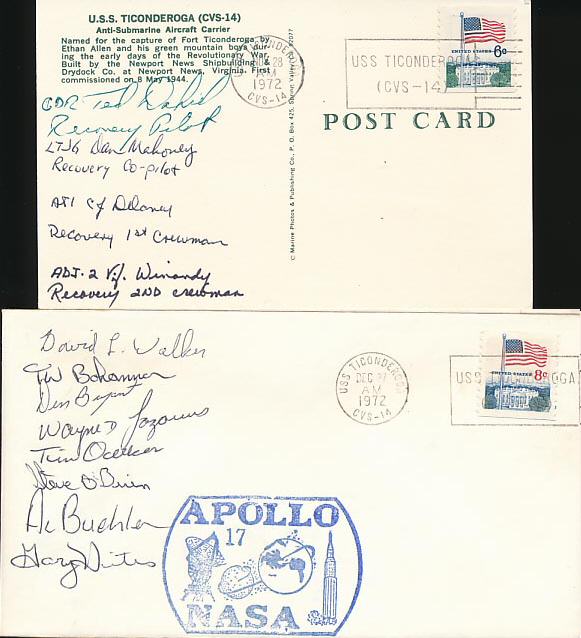 U.S.S. TICONDEROGA (CVS-14)
Anti-Submarine Aircraft Carrier
Named for the capture of Fort Ticonderoga by
Ethan Allen and his green mountain boys dur-
ing the early days of the Revolutionary War.
Built by the Newport News Shipbuilding &
Drydock Co. at Newport News, Virginia. First
commissioned on 8 May 1944.
CDR Ted
Recovery Pilot
LTJG Dan Mahoney
Recovery Co-pilot
AT1 CJ Delaney
Recovery 1st Crewman
ADJ-2 Winandy
Recovery 2ND crewman
© Marine Photos & Publishing Co., P. O. Box 425, Spring Valley, Ca. 92077
28
1972
CVS-14
USS TICONDEROGA
(CVS-14)
UNITED STATES 6c
POST CARD
David L. Walker
Bohannon
Den Bryant
Wayne D Lazarus
Tim
Steve O'Brien
Al Buehler
Gary
USS TICONDEROGA
DEC
AM
1972
CVS-14
USS TICONDEROGA
UNITED STATES 8c
APOLLO
17
NASA